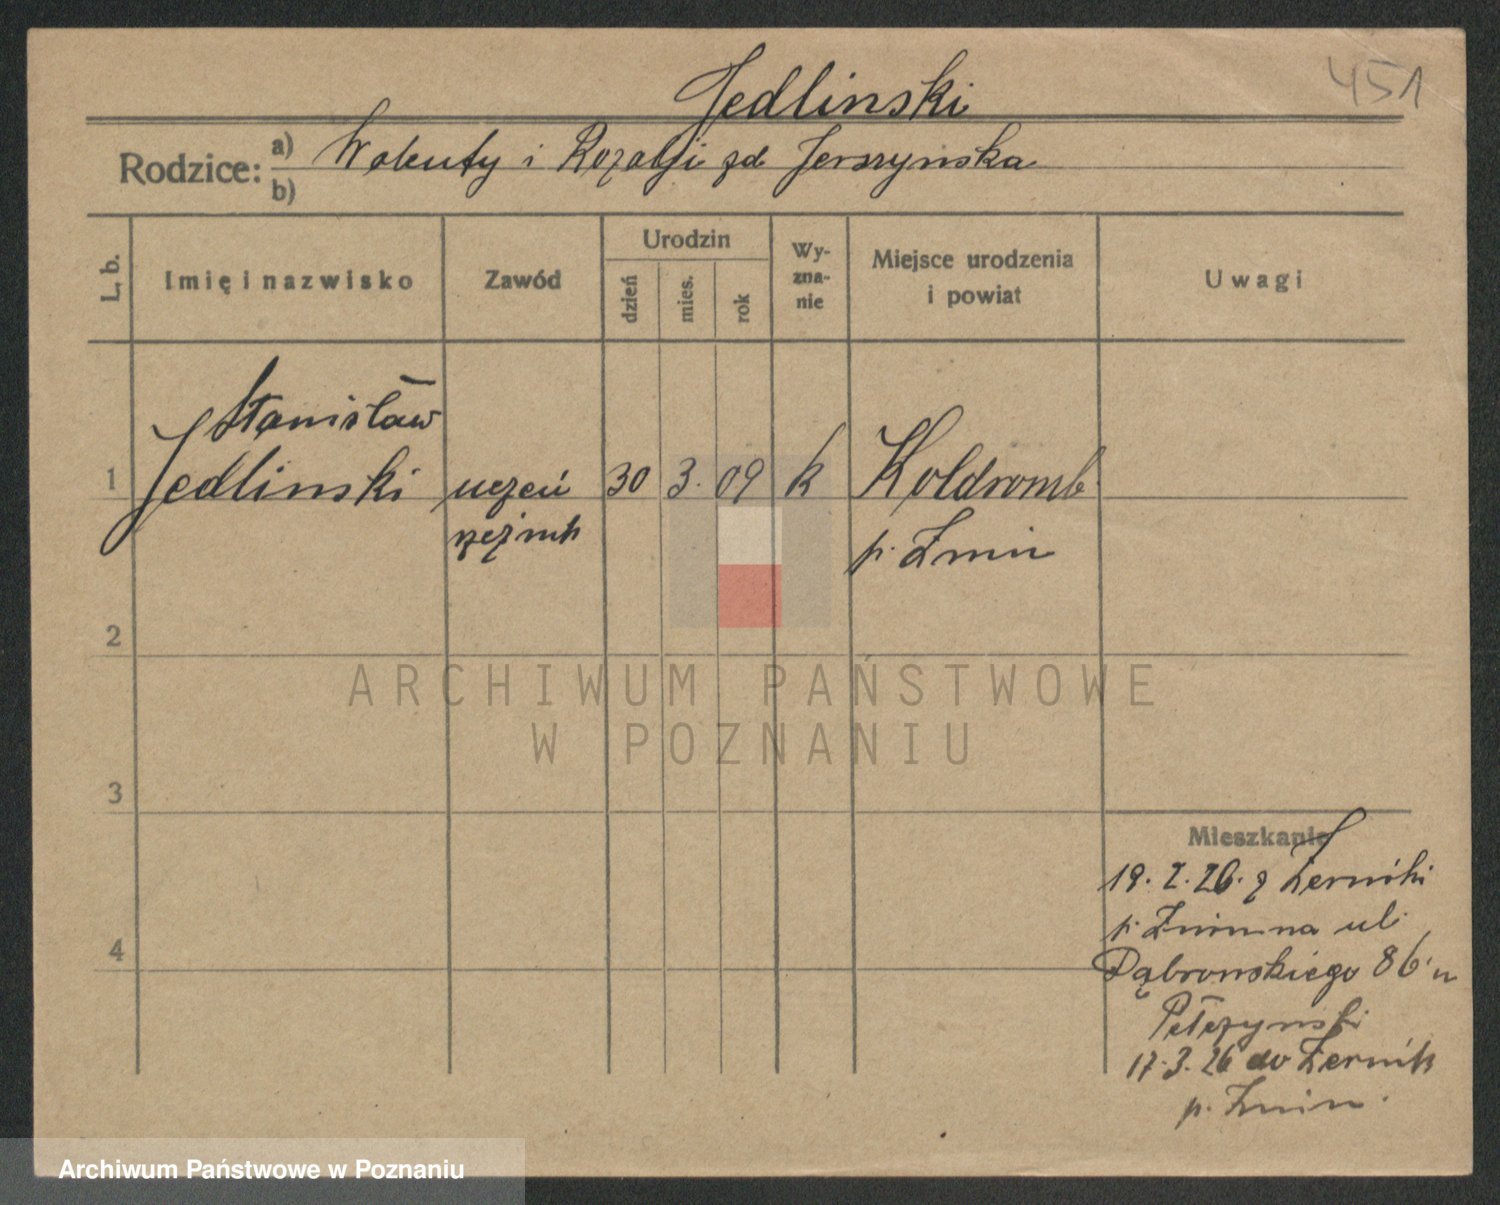 451
Jedlinski
Rodzice: a) Walenty i Rozalji zd Jerszynska
b)
L. b. Imię i nazwisko Zawód Urodzin dzień mies. rok Wy-zna-nie Miejsce urodzenia i powiat Uwagi
Stanisław
1 Jedlinski uczeń 30 3. 09 k Koldromb
rzeźnik p. Żnin
2
3
4
Mieszkanie
19. 2. 26. z Żerniki
p. Żnin na ul
Dąbrowskiego 86 u
Pełczynski
17. 3. 26 do Żernik
p. Żnin.
ARCHIWUM PAŃSTWOWE
W POZNANIU
Archiwum Państwowe w Poznaniu